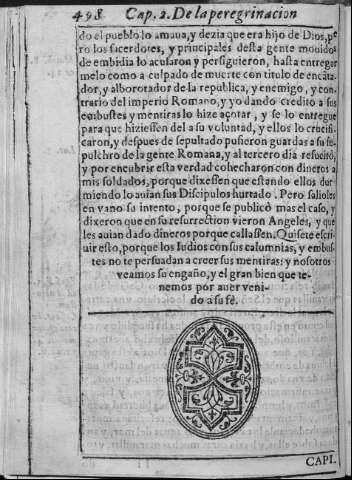 498 Cap. 2. De la peregrinacion
do el pueblo lo amaua, y dezia que era hijo de Dios, pe
ro los sacerdotes, y principales desta gente mouidos
de embidia lo acusaron y persiguieron, hasta entregar
melo como a culpado de muerte con titulo de encãta-
dor, y alborotador de la republica, y enemigo, y con-
trario del imperio Romano, y yo dando credito a sus
embustes y mentiras lo hize açotar, y se lo entregue
para que hiziessen del a su voluntad, y ellos lo crucifi-
caron, y despues de sepultado pusieron guardas a su se-
pulchro de la gente Romana, y al tercero dia resucitó,
y por encubrir esta verdad cohecharon con dineros a
mis soldados, porque dixessen que estando ellos dur
miendo lo auian sus Discipulos hurtado. Pero salioles
en vano su intento, porque se publicò mas el caso, y
dixeron que en su resurrection vieron Angeles, y que
les auian dado dineros porque callassen. Quisete escri-
uir esto, porque los Iudios con sus calumnias, y embus-
tes no te persuadan a creer sus mentiras: y nosotros
veamos su engaño, y el gran bien que te-
nemos por auer veni-
do a su fê.
CAPI.